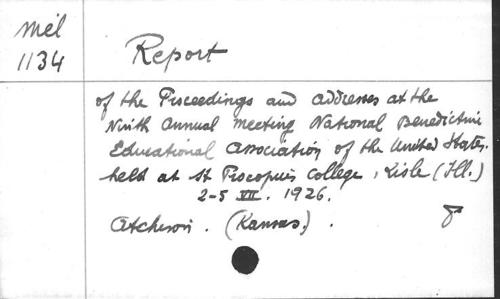 Mél
1134
Report
of the Proceedings and addresses at the
Ninth Annual meeting National Benedictine
Educational Association of the United States.
held at St Procopius College, Lisle (Ill.)
2-5 VII. 1926.
Atchison. (Kansas.).